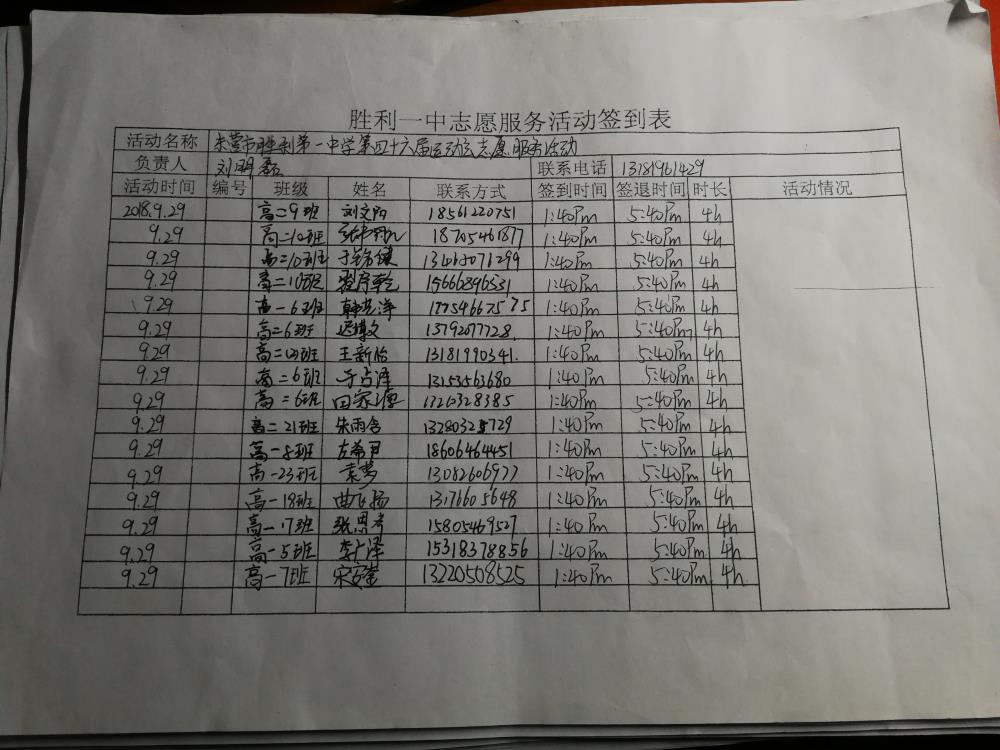 胜利一中志愿服务活动签到表
活动名称 东营市胜利第一中学第四十六届运动会志愿服务活动
负责人 刘明磊 联系电话 13181961429
活动时间 编号 班级 姓名 联系方式 签到时间 签退时间 时长 活动情况
2018.9.29 高二9班 刘文阳 18561220751 1:40Pm 5:40Pm 4h
9.29 高二10班 18705461877 1:40Pm 5:40Pm 4h
9.29 高二10班 1:40Pm 5:40Pm 4h
9.29 高二10班 15666896531 1:40Pm 5:40Pm 4h
9.29 高一6班 17754667575 1:40Pm 5:40Pm 4h
9.29 高二6班 迟博文 13792077728 1:40Pm 5:40Pm 4h
9.29 王新怡 13181990341. 1:40Pm 5:40Pm 4h
9.29 高二6班 于占泽 13153563680 1:40Pm 5:40Pm 4h
9.29 高二6班 1:40Pm 5:40Pm 4h
9.29 高二21班 朱雨含 1:40Pm 5:40Pm 4h
9.29 高一8班 左希尹 18606464451 1:40Pm 5:40Pm 4h
9.29 高一23班 袁梦 13082606977 1:40Pm 5:40Pm 4h
9.29 高一18班 曲飞扬 13176605648 1:40Pm 5:40Pm 4h
9.29 高一17班 15805469527 1:40Pm 5:40Pm 4h
9.29 高一5班 李广泽 15318378856 1:40Pm 5:40Pm 4h
9.29 高一7班 宋安奎 13220508525 1:40Pm 5:40Pm 4h